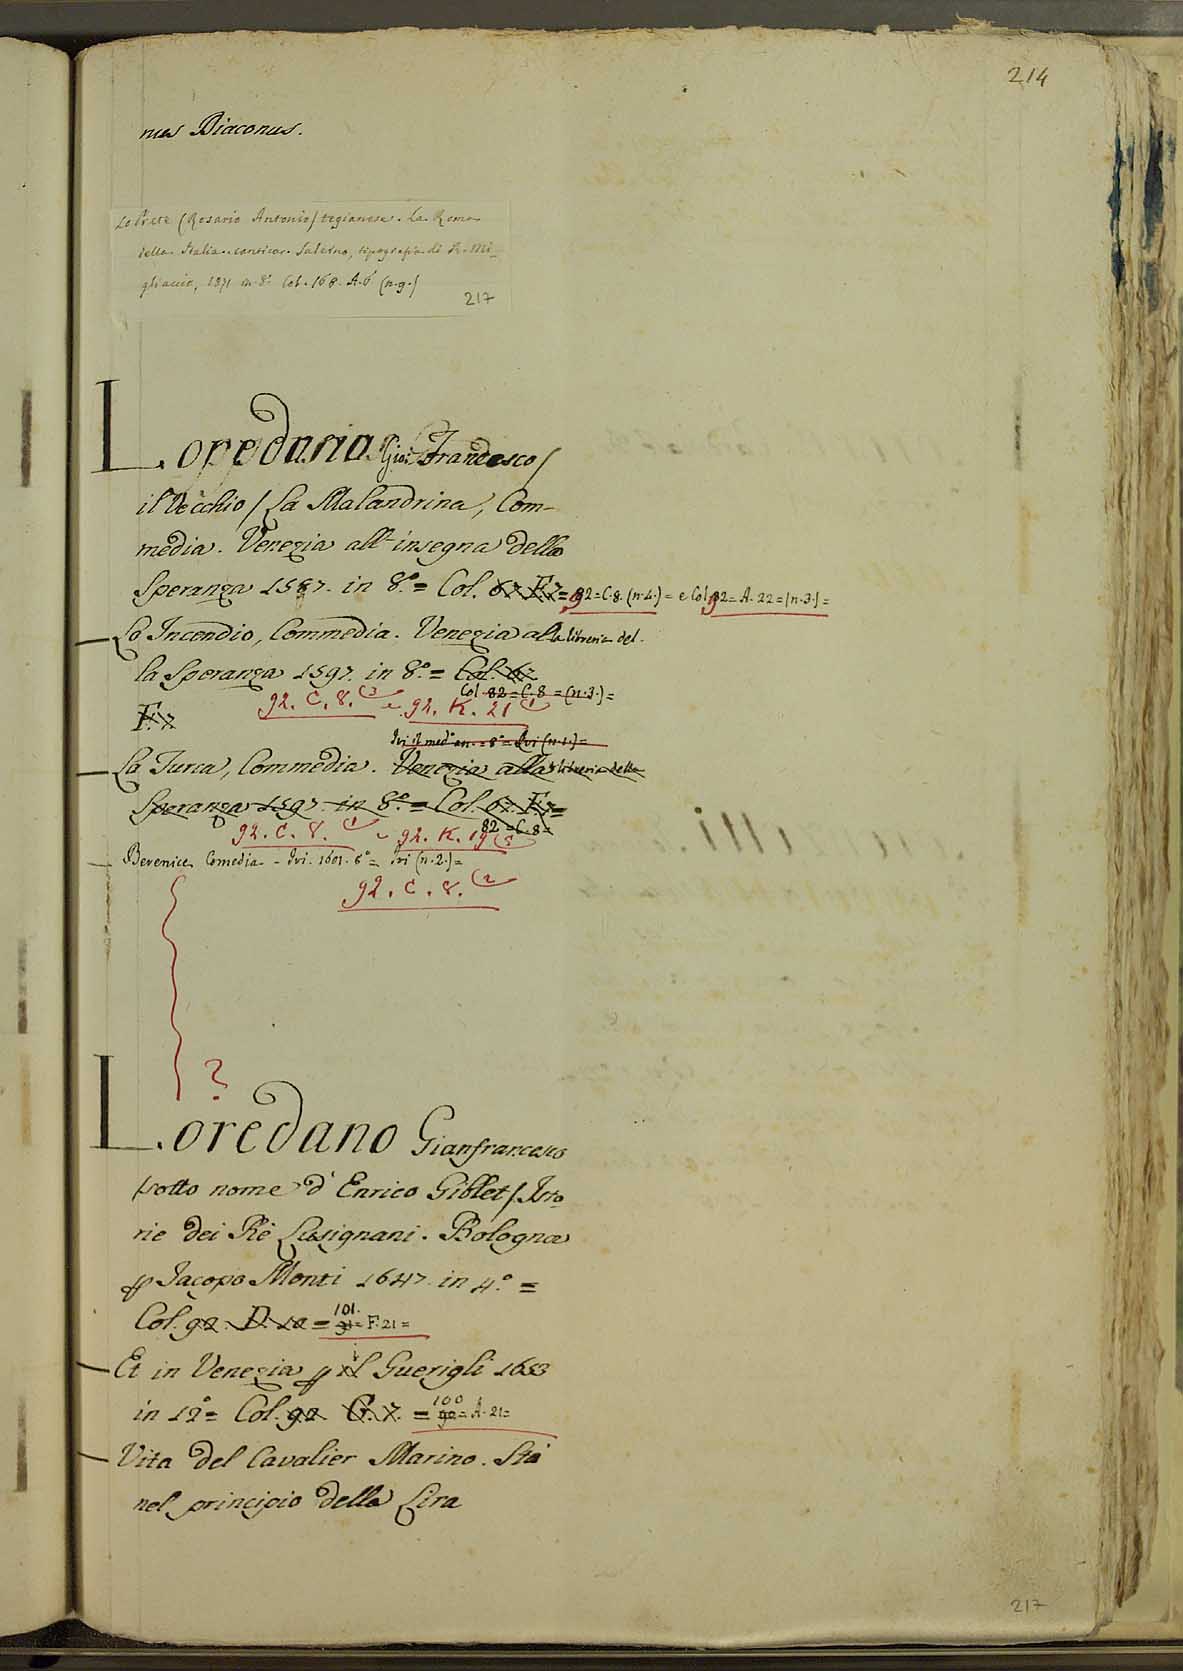 214
nus Diaconus.
Lo Prete (Rosario Antonio) tegianese. La Roma
della Italia. Salerno, tipografia di R. Mi_
gliaccio, 1871 in 8.º Col. 168. A. 6 (n.9.)
217
Loredano Gio: Francesco/
il Vecchio/ La Malandrina, Com-
media. Venezia all'insegna della
Speranza 1587. in 8.º = Col. 67. F. 7 = 92 = C. 8. (n. 4.) = e Col. 92 = A. 22 = (n. 3.) =
Lo Incendio, Commedia. Venezia alla libreria del-
la Speranza 1597. in 8.º = Col. 67.
Col 82 = C. 8 = (n. 3.) =
92. C. 8. (3 e 92. K. 21 (1
F. 7
Ivi il med.º an. = 8.º = Ivi (n. 1.) =
La Turca, Commedia. Venezia alla libreria della
Speranza 1597. in 8.º = Col. 67. F. 7 =
82 = C. 8 =
92. C. 8. (1 e 92. K. 19 (2
Berenice Comedia - Ivi. 1601. 8º = Ivi (n. 2.) =
92. C. 8. (2
?
Loredano Gianfrancesco
/sotto nome d'Enrico Giblet/ Isto
rie dei Rè Lusignani. Bologna
p Jacopo Monti 1647. in 4.º =
Col. 92. D. 10 = 101. 91 = F. 21 =
Et in Venezia p il Guerigli 1653
in 12º = Col. 92 G. 7. = 100 90 = A. 21 =
Vita del Cavalier Marino. Stà
nel principio della Lira
217